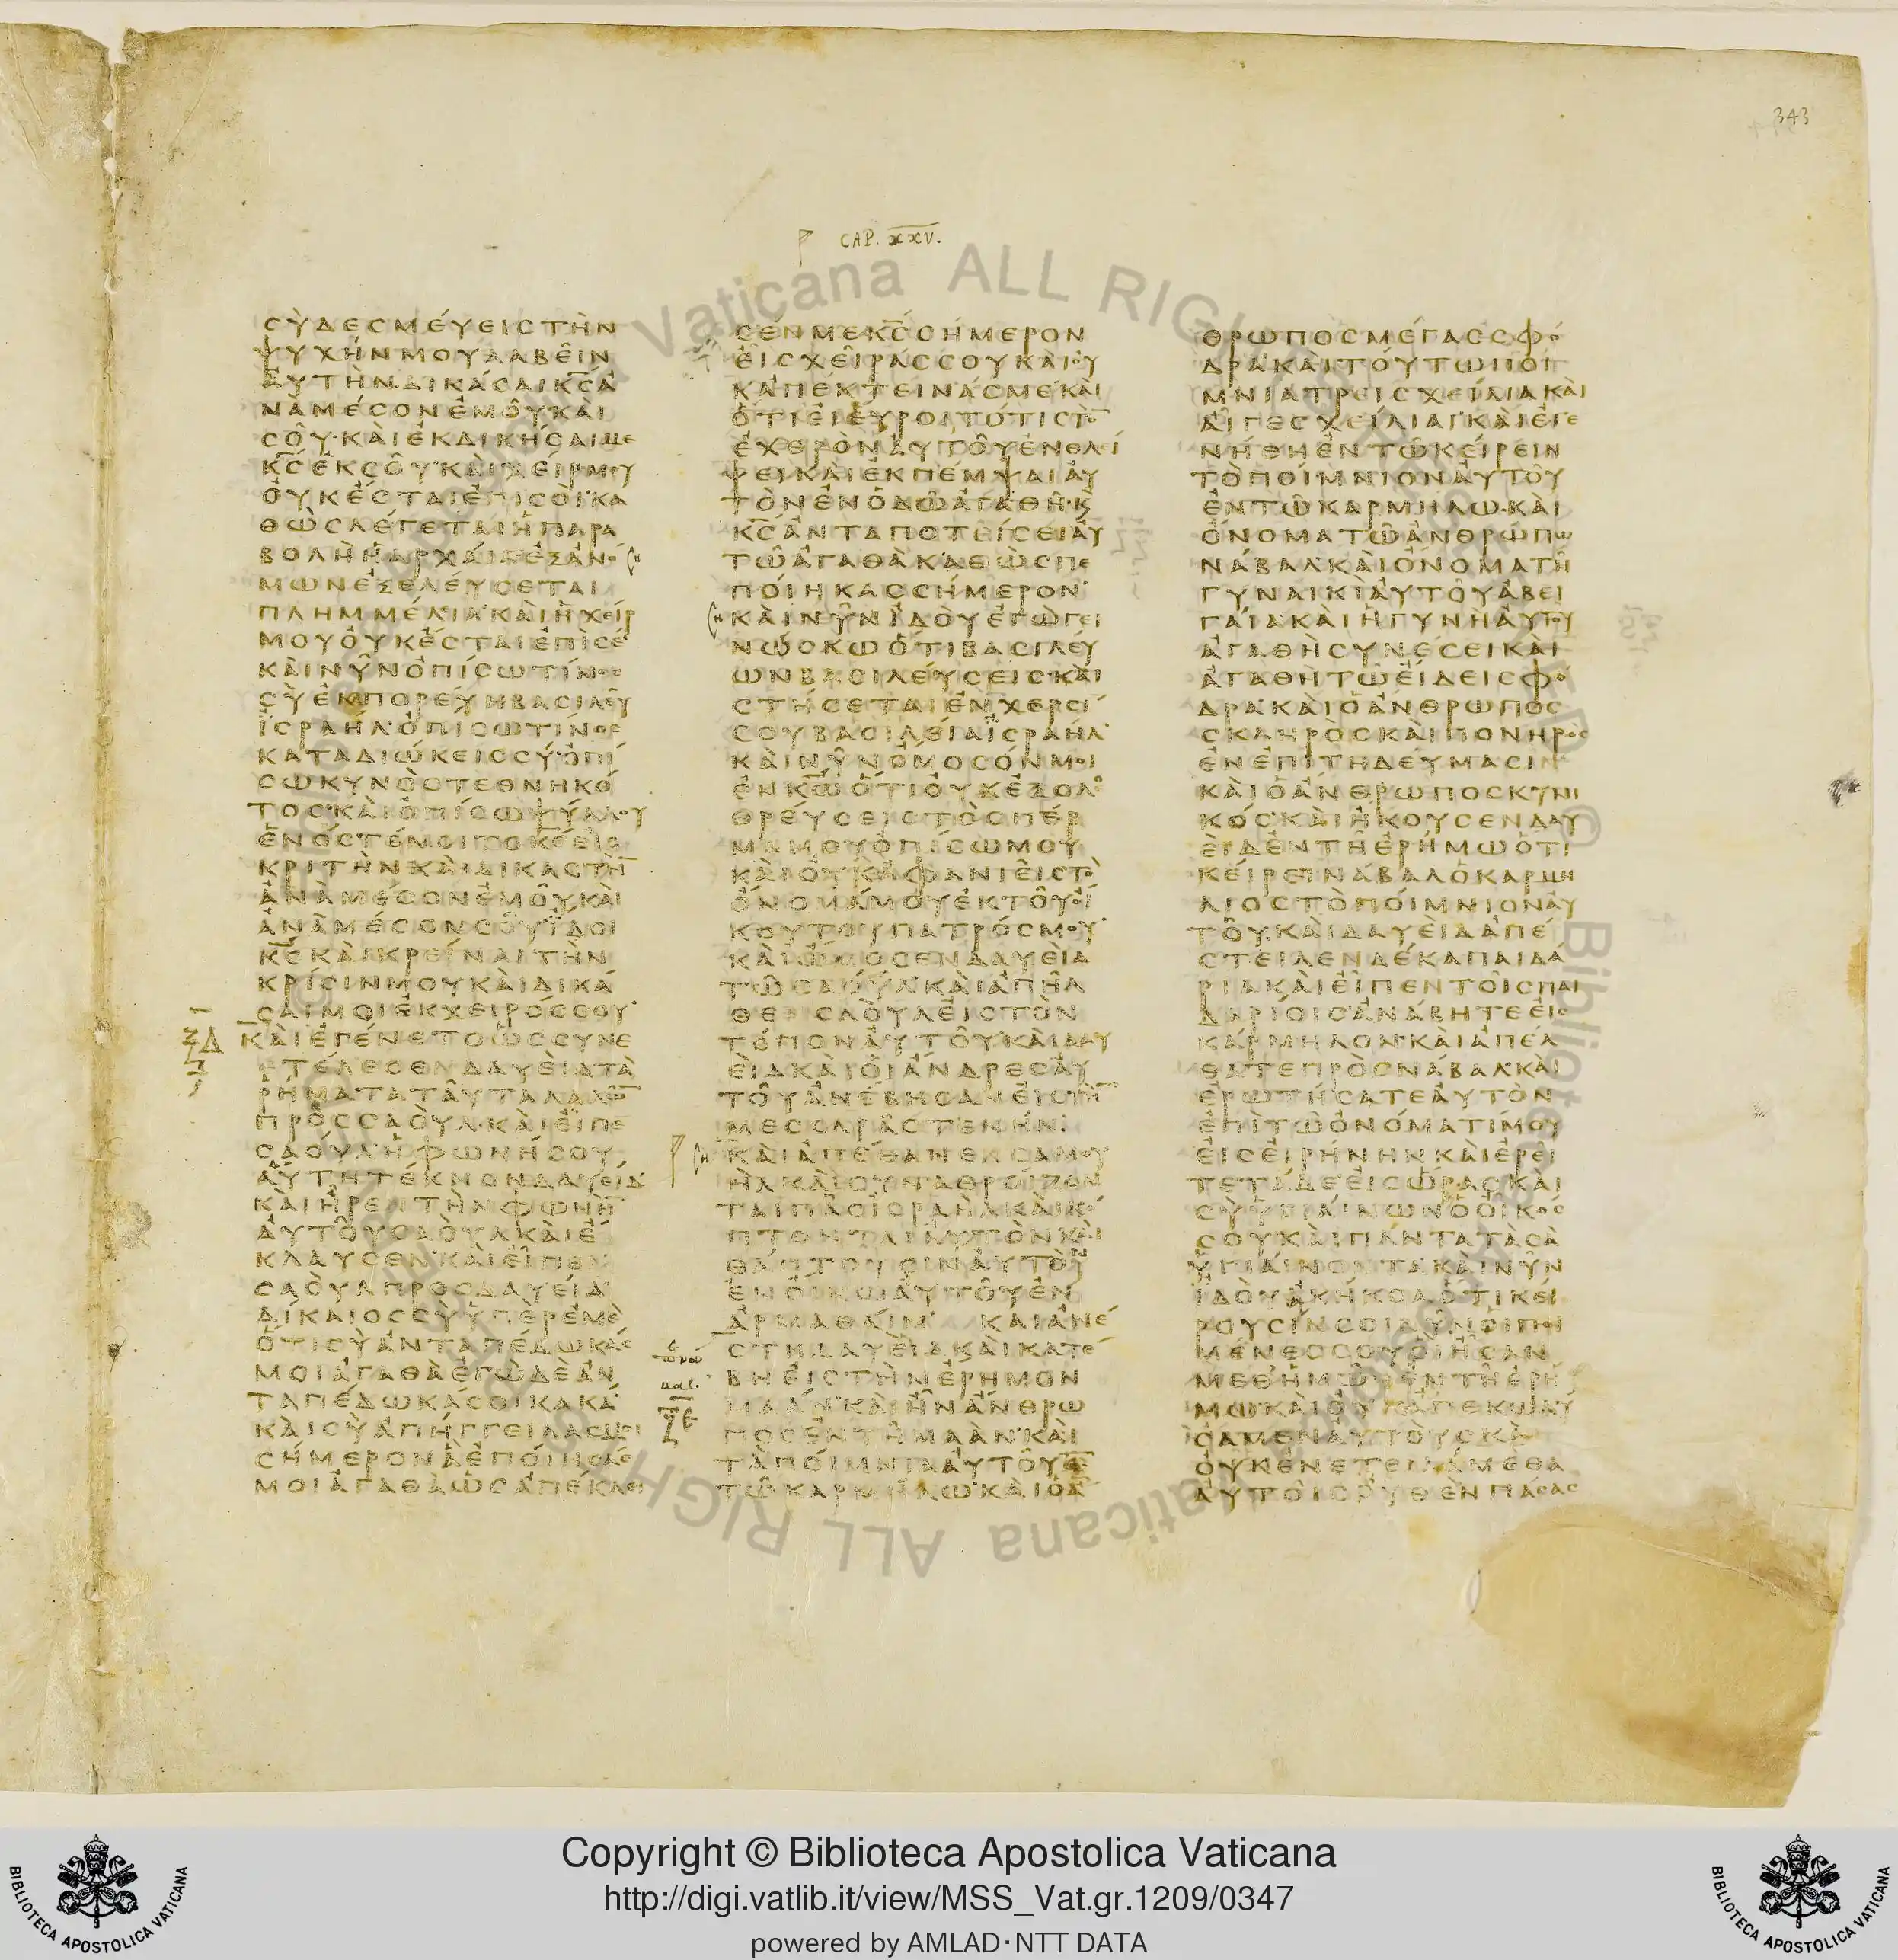 343
CAP. XXV.
ϹΥΔΕϹΜΕΥΕΙϹΤΗΝ
ΨΥΧΗΝΜΟΥΛΑΒΕΙΝ
ΑΥΤΗΝΔΙΚΑϹΑΙΚϹΑ
ΝΑΜΕϹΟΝΕΜΟΥΚΑΙ
ϹΟΥΚΑΙΕΚΔΙΚΗϹΑΙΜΕ
ΚϹΕΚϹΟΥΚΑΙΧΕΙΡΜΟΥ
ΟΥΚΕϹΤΑΙΕΠΙϹΟΙΚΑ
ΘΩϹΛΕΓΕΤΑΙΗΠΑΡΑ
ΒΟΛΗΗΑΡΧΑΙΑΕΞΑΝΟ
ΜΩΝΕΞΕΛΕΥϹΕΤΑΙ
ΠΛΗΜΜΕΛΙΑΚΑΙΗΧΕΙΡ
ΜΟΥΟΥΚΕϹΤΑΙΕΠΙϹΕ
ΚΑΙΝΥΝΟΠΙϹΩΤΙΝΟϹ
ϹΥΕΚΠΟΡΕΥΗΒΑϹΙΛΕΥ
ΙϹΡΑΗΛΟΠΙϹΩΤΙΝΟϹ
ΚΑΤΑΔΙΩΚΕΙϹϹΥΟΠΙ
ϹΩΚΥΝΟϹΤΕΘΝΗΚΟ
ΤΟϹΚΑΙΟΠΙϹΩΨΥΛΛΟΥ
ΕΝΟϹΓΕΝΟΙΤΟΚϹΕΙϹ
ΚΡΙΤΗΝΚΑΙΔΙΚΑϹΤΗ̅
ΑΝΑΜΕϹΟΝΕΜΟΥΚΑΙ
ΑΝΑΜΕϹΟΝϹΟΥΙΔΟΙ
ΚϹΚΑΙΚΡΕΙΝΑΙΤΗΝ
ΚΡΙϹΙΝΜΟΥΚΑΙΔΙΚΑ
ϹΑΙΜΟΙΕΚΧΕΙΡΟϹϹΟΥ
ΚΑΙΕΓΕΝΕΤΟΩϹϹΥΝΕ
ΤΕΛΕϹΕΝΔΑΥΕΙΔΤΑ
ΡΗΜΑΤΑΤΑΥΤΑΛΑΛΩ̅
ΠΡΟϹϹΑΟΥΛΚΑΙΕΙΠΕ
ϹΑΟΥΛΗΦΩΝΗϹΟΥ
ΑΥΤΗΤΕΚΝΟΝΔΑΥΕΙΔ
ΚΑΙΗΡΕΝΤΗΝΦΩΝΗ̅
ΑΥΤΟΥϹΑΟΥΛΚΑΙΕ
ΚΛΑΥϹΕΝΚΑΙΕΙΠΕΝ
ϹΑΟΥΛΠΡΟϹΔΑΥΕΙΔ
ΔΙΚΑΙΟϹϹΥΥΠΕΡΕΜΕ
ΟΤΙϹΥΑΝΤΑΠΕΔΩΚΑϹ
ΜΟΙΑΓΑΘΑΕΓΩΔΕΑΝ
ΤΑΠΕΔΩΚΑϹΟΙΚΑΚΑ
ΚΑΙϹΥΑΠΗΓΓΕΙΛΑϹΜΟΙ
ϹΗΜΕΡΟΝΑΕΠΟΙΗϹΑϹ
ΜΟΙΑΓΑΘΑΩϹΑΠΕΚΛΕΙ
ϹΕΝΜΕΚϹϹΗΜΕΡΟΝ
ΕΙϹΧΕΙΡΑϹϹΟΥΚΑΙΟΥ
ΚΑΠΕΚΤΕΙΝΑϹΜΕΚΑΙ
ΟΤΙΕΙΕΥΡΟΙΤΟΤΙϹΤΟ̅
ΕΧΘΡΟΝΑΥΤΟΥΕΝΘΛΙ
ΨΕΙΚΑΙΕΚΠΕΜΨΑΙΑΥ
ΤΟΝΕΝΟΔΩΑΓΑΘΗΚΑΙ
ΚϹΑΝΤΑΠΟΤΕΙϹΕΙΑΥ
ΤΩΑΓΑΘΑΚΑΘΩϹΠΕ
ΠΟΙΗΚΑϹϹΗΜΕΡΟΝ
ΚΑΙΝΥΝΙΔΟΥΕΓΩΓΕΙ
ΝΩϹΚΩΟΤΙΒΑϹΙΛΕΥ
ΩΝΒΑϹΙΛΕΥϹΕΙϹΚΑΙ
ϹΤΗϹΕΤΑΙΕΝΧΕΡϹΙ
ϹΟΥΒΑϹΙΛΕΙΑΙϹΡΑΗΛ
ΚΑΙΝΥΝΟΜΟϹΟΝΜΟΙ
ΕΝΚΩΟΤΙΟΥΚΕΞΟΛΕ
ΘΡΕΥϹΕΙϹΤΟϹΠΕΡ
ΜΑΜΟΥΟΠΙϹΩΜΟΥ
ΚΑΙΟΥΚΑΦΑΝΙΕΙϹΤΟ
ΟΝΟΜΑΜΟΥΕΚΤΟΥΟΙ
ΚΟΥΤΟΥΠΑΤΡΟϹΜΟΥ
ΚΑΙΩΜΟϹΕΝΔΑΥΕΙΔ
ΤΩϹΑΟΥΛΚΑΙΑΠΗΛ
ΘΕΝϹΑΟΥΛΕΙϹΤΟΝ
ΤΟΠΟΝΑΥΤΟΥΚΑΙΔΑΥ
ΕΙΔΚΑΙΟΙΑΝΔΡΕϹΑΥ
ΤΟΥΑΝΕΒΗϹΑΝΕΙϹΤΗ̅
ΜΕϹϹΑΡΑϹΤΕΝΗΝ
ΚΑΙΑΠΕΘΑΝΕΝϹΑΜΟΥ
ΗΛΚΑΙϹΥΝΑΘΡΟΙΖΟΝ
ΤΑΙΠΑϹΙϹΡΑΗΛΚΑΙΚΟ
ΠΤΟΝΤΑΙΑΥΤΟΝΚΑΙ
ΘΑΠΤΟΥϹΙΝΑΥΤΟΝ
ΕΝΟΙΚΩΑΥΤΟΥΕΝ
ΑΡΜΑΘΑΙΜ ΚΑΙΑΝΕ
ϹΤΗΔΑΥΕΙΔΚΑΙΚΑΤΕ
ΒΗΕΙϹΤΗΝΕΡΗΜΟΝ
ΜΑΑΝΚΑΙΗΝΑΝΘΡΩ
ΠΟϹΕΝΤΗΜΑΑΝΚΑΙ
ΤΑΠΟΙΜΝΙΑΑΥΤΟΥΕ̅
ΤΩΚΑΡΜΗΛΩΚΑΙΟΑ̅
ΘΡΩΠΟϹΜΕΓΑϹϹΦΟ
ΔΡΑΚΑΙΤΟΥΤΩΠΟΙ
ΜΝΙΑΤΡΕΙϹΧΕΙΛΙΑΚΑΙ
ΑΙΓΕϹΧΕΙΛΙΑΙΚΑΙΕΓΕ
ΝΗΘΗΕΝΤΩΚΕΙΡΕΙΝ
ΤΟΠΟΙΜΝΙΟΝΑΥΤΟΥ
ΕΝΤΩΚΑΡΜΗΛΩΚΑΙ
ΟΝΟΜΑΤΩΑΝΘΡΩΠΩ
ΝΑΒΑΛΚΑΙΟΝΟΜΑΤΗ
ΓΥΝΑΙΚΙΑΥΤΟΥΑΒΕΙ
ΓΑΙΑΚΑΙΗΓΥΝΗΑΥΤΟΥ
ΑΓΑΘΗϹΥΝΕϹΕΙΚΑΙ
ΑΓΑΘΗΤΩΕΙΔΕΙϹΦΟ
ΔΡΑΚΑΙΟΑΝΘΡΩΠΟϹ
ϹΚΛΗΡΟϹΚΑΙΠΟΝΗΡΟϹ
ΕΝΕΠΙΤΗΔΕΥΜΑϹΙΝ
ΚΑΙΟΑΝΘΡΩΠΟϹΚΥΝΙ
ΚΟϹΚΑΙΗΚΟΥϹΕΝΔΑΥ
ΕΙΔΕΝΤΗΕΡΗΜΩΟΤΙ
ΚΕΙΡΕΙΝΑΒΑΛΟΚΑΡΜΗ
ΛΙΟϹΤΟΠΟΙΜΝΙΟΝΑΥ
ΤΟΥΚΑΙΔΑΥΕΙΔΑΠΕ
ϹΤΕΙΛΕΝΔΕΚΑΠΑΙΔΑ
ΡΙΑΚΑΙΕΙΠΕΝΤΟΙϹΠΑΙ
ΔΑΡΙΟΙϹΑΝΑΒΗΤΕΕΙϹ
ΚΑΡΜΗΛΟΝΚΑΙΑΠΕΛ
ΘΑΤΕΠΡΟϹΝΑΒΑΛΚΑΙ
ΕΡΩΤΗϹΑΤΕΑΥΤΟΝ
ΕΠΙΤΩΟΝΟΜΑΤΙΜΟΥ
ΕΙϹΕΙΡΗΝΗΝΚΑΙΕΡΕΙ
ΤΕΤΑΔΕΕΙϹΩΡΑϹΚΑΙ
ϹΥΥΓΙΑΙΝΩΝΟΟΙΚΟϹ
ϹΟΥΚΑΙΠΑΝΤΑΤΑϹΑ
ΥΓΙΑΙΝΟΝΤΑΚΑΙΝΥΝ
ΙΔΟΥΑΚΗΚΟΑΟΤΙΚΕΙ
ΡΟΥϹΙΝϹΟΙΝΥΝΟΙΠΟΙ
ΜΕΝΕϹϹΟΥΟΙΗϹΑΝ
ΜΕΘΗΜΩΝΕΝΤΗΕΡΗ
ΜΩΚΑΙΟΥΚΑΠΕΚΩΛΥ
ϹΑΜΕΝΑΥΤΟΥϹΚΑΙ
ΟΥΚΕΝΕΤΕΙΛΑΜΕΘΑ
ΑΥΤΟΙϹΟΥΘΕΝΠΑϹΑϹ
Copyright © Biblioteca Apostolica Vaticana
http://digi.vatlib.it/view/MSS_Vat.gr.1209/0347
powered by AMLAD·NTT DATA
BIBLIOTECA APOSTOLICA VATICANA
BIBLIOTECA APOSTOLICA VATICANA